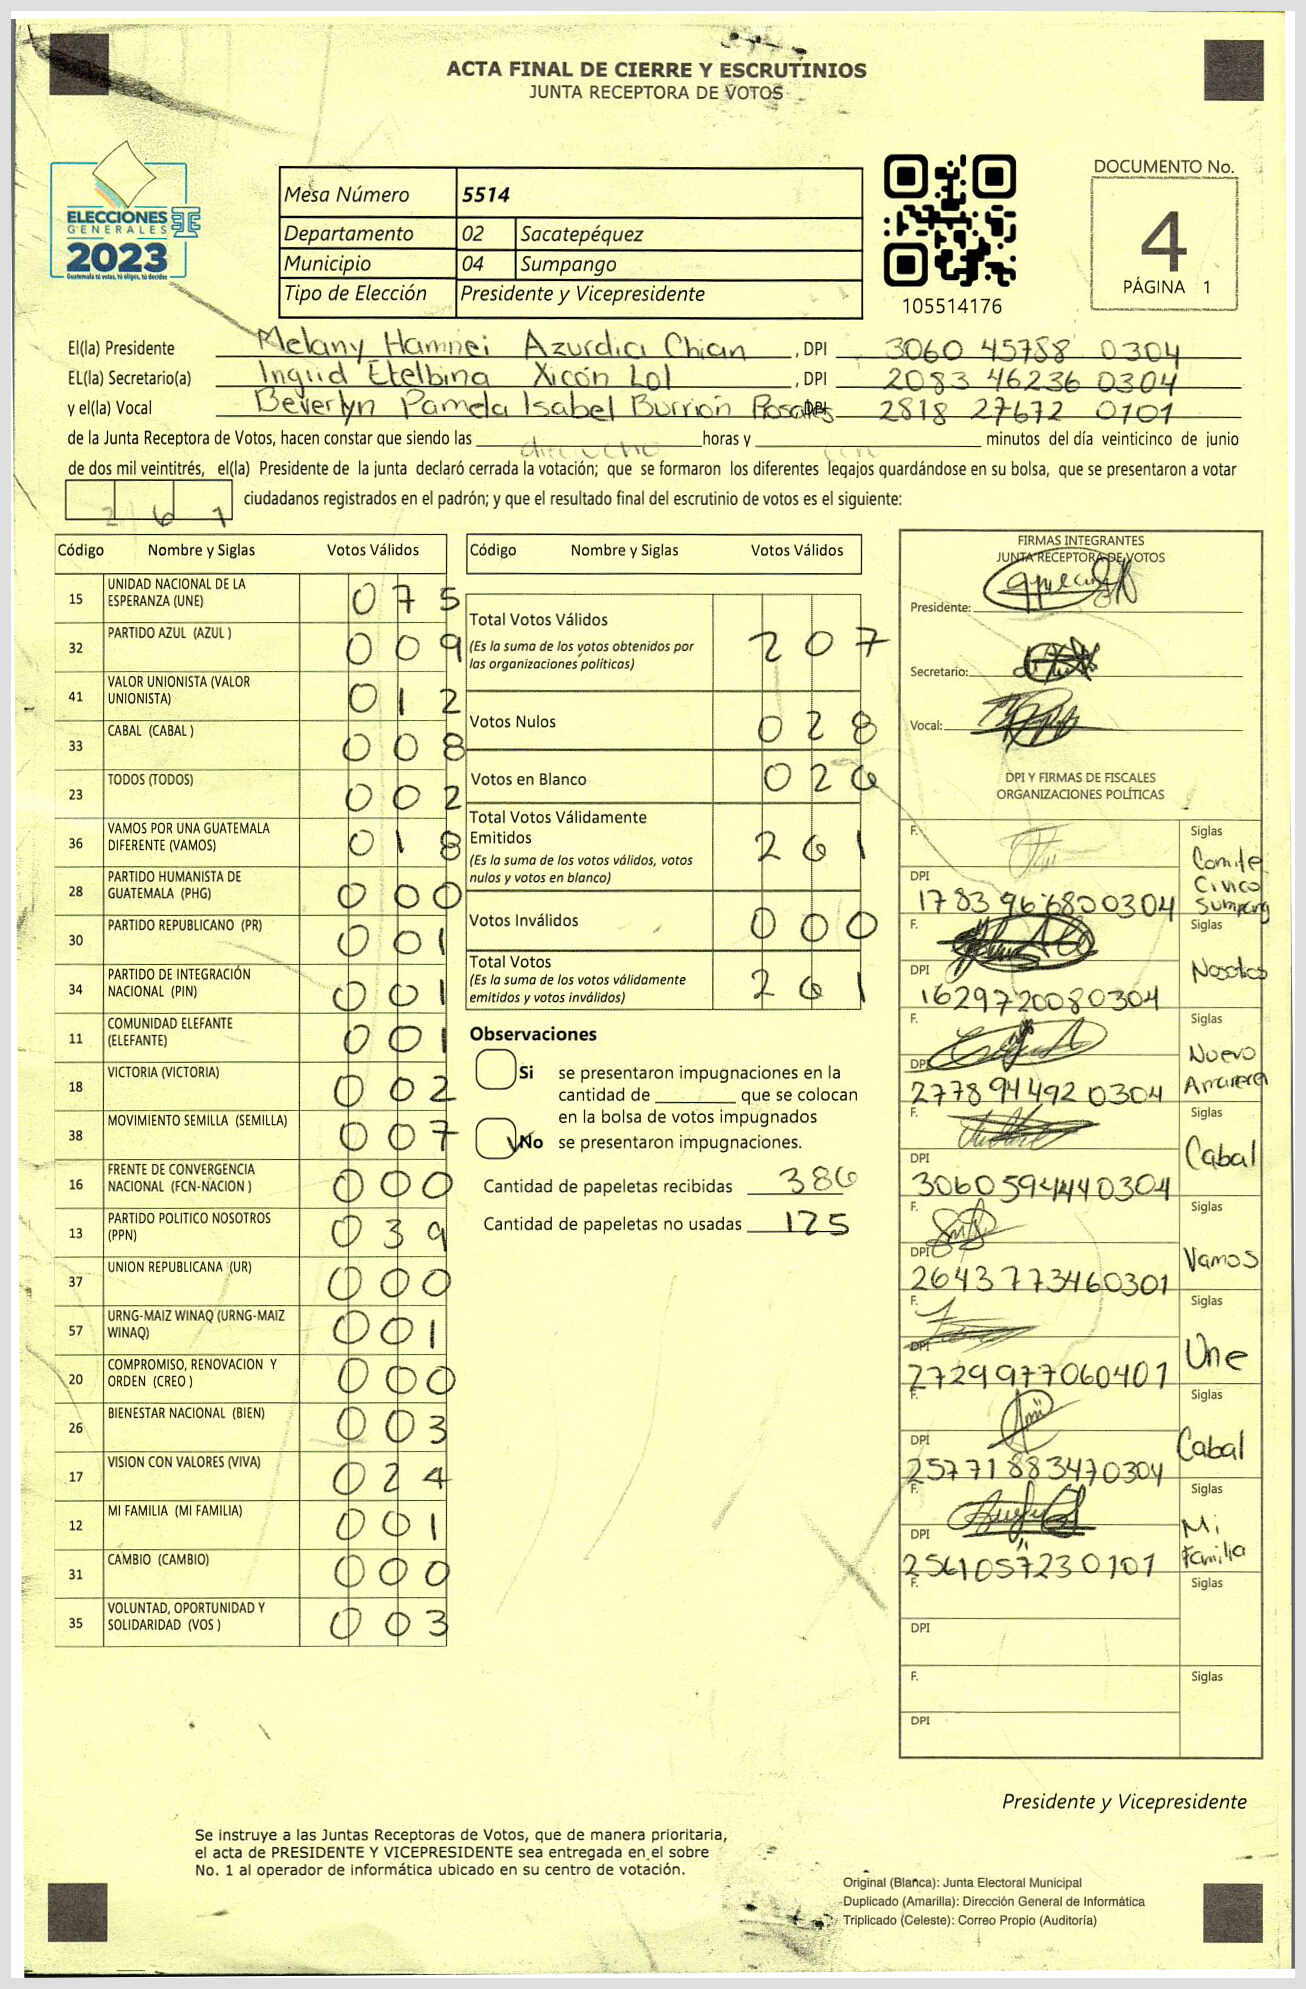 ACTA FINAL DE CIERRE Y ESCRUTINIOS
JUNTA RECEPTORA DE VOTOS
ELECCIONES
GENERALES
2023
Guatemala tú votas, tú eliges, tú decides
Mesa Número 5514
Departamento 02 Sacatepéquez
Municipio 04 Sumpango
Tipo de Elección Presidente y Vicepresidente
105514176
DOCUMENTO No.
4
PÁGINA 1
El(la) Presidente Melany Hamnei Azurdia Chian , DPI 3060 45788 0304
EL(la) Secretario(a) Ingrid Etelbina Xicón Lol , DPI 2083 46236 0304
y el(la) Vocal Beverlyn Pamela Isabel Burrion Rosales DPI 2818 27672 0101
de la Junta Receptora de Votos, hacen constar que siendo las dieciocho horas y minutos del día veinticinco de junio
de dos mil veintitrés, el(la) Presidente de la junta declaró cerrada la votación; que se formaron los diferentes legajos quardándose en su bolsa, que se presentaron a votar
261 ciudadanos registrados en el padrón; y que el resultado final del escrutinio de votos es el siguiente:
Código Nombre y Siglas Votos Válidos
15 UNIDAD NACIONAL DE LA ESPERANZA (UNE) 075
32 PARTIDO AZUL (AZUL ) 009
41 VALOR UNIONISTA (VALOR UNIONISTA) 012
33 CABAL (CABAL ) 008
23 TODOS (TODOS) 002
36 VAMOS POR UNA GUATEMALA DIFERENTE (VAMOS) 018
28 PARTIDO HUMANISTA DE GUATEMALA (PHG) 000
30 PARTIDO REPUBLICANO (PR) 001
34 PARTIDO DE INTEGRACIÓN NACIONAL (PIN) 001
11 COMUNIDAD ELEFANTE (ELEFANTE) 001
18 VICTORIA (VICTORIA) 002
38 MOVIMIENTO SEMILLA (SEMILLA) 007
16 FRENTE DE CONVERGENCIA NACIONAL (FCN-NACION ) 000
13 PARTIDO POLITICO NOSOTROS (PPN) 039
37 UNION REPUBLICANA (UR) 000
57 URNG-MAIZ WINAQ (URNG-MAIZ WINAQ) 001
20 COMPROMISO, RENOVACION Y ORDEN (CREO ) 000
26 BIENESTAR NACIONAL (BIEN) 003
17 VISION CON VALORES (VIVA) 024
12 MI FAMILIA (MI FAMILIA) 001
31 CAMBIO (CAMBIO) 000
35 VOLUNTAD, OPORTUNIDAD Y SOLIDARIDAD (VOS ) 003
Código Nombre y Siglas Votos Válidos
Total Votos Válidos 207
(Es la suma de los votos obtenidos por
las organizaciones políticas)
Votos Nulos 028
Votos en Blanco 026
Total Votos Válidamente
Emitidos 261
(Es la suma de los votos válidos, votos
nulos y votos en blanco)
Votos Inválidos 000
Total Votos 261
(Es la suma de los votos válidamente
emitidos y votos inválidos)
Observaciones
Si se presentaron impugnaciones en la
cantidad de ________ que se colocan
en la bolsa de votos impugnados
No se presentaron impugnaciones.
Cantidad de papeletas recibidas 386
Cantidad de papeletas no usadas 125
FIRMAS INTEGRANTES
JUNTA RECEPTORA DE VOTOS
Presidente:
Secretario:
Vocal:
DPI Y FIRMAS DE FISCALES
ORGANIZACIONES POLÍTICAS
F. Siglas Comite Civico Sumpang
DPI 1783 966800304
F. Siglas Nosotros
DPI 1629720080304
F. Siglas Nuevo
DPI 2778944920304
F. Siglas Cabal
DPI 3060594440304
F. Siglas Vamos
DPI 2643773460301
F. Siglas Une
DPI 2729977060401
F. Siglas Cabal
DPI 2577188347 0304
F. Siglas Mi Familia
DPI 2561057230101
F. Siglas
DPI
F. Siglas
DPI
Presidente y Vicepresidente
Se instruye a las Juntas Receptoras de Votos, que de manera prioritaria,
el acta de PRESIDENTE Y VICEPRESIDENTE sea entregada en el sobre
No. 1 al operador de informática ubicado en su centro de votación.
Original (Blanca): Junta Electoral Municipal
Duplicado (Amarilla): Dirección General de Informática
Triplicado (Celeste): Correo Propio (Auditoría)